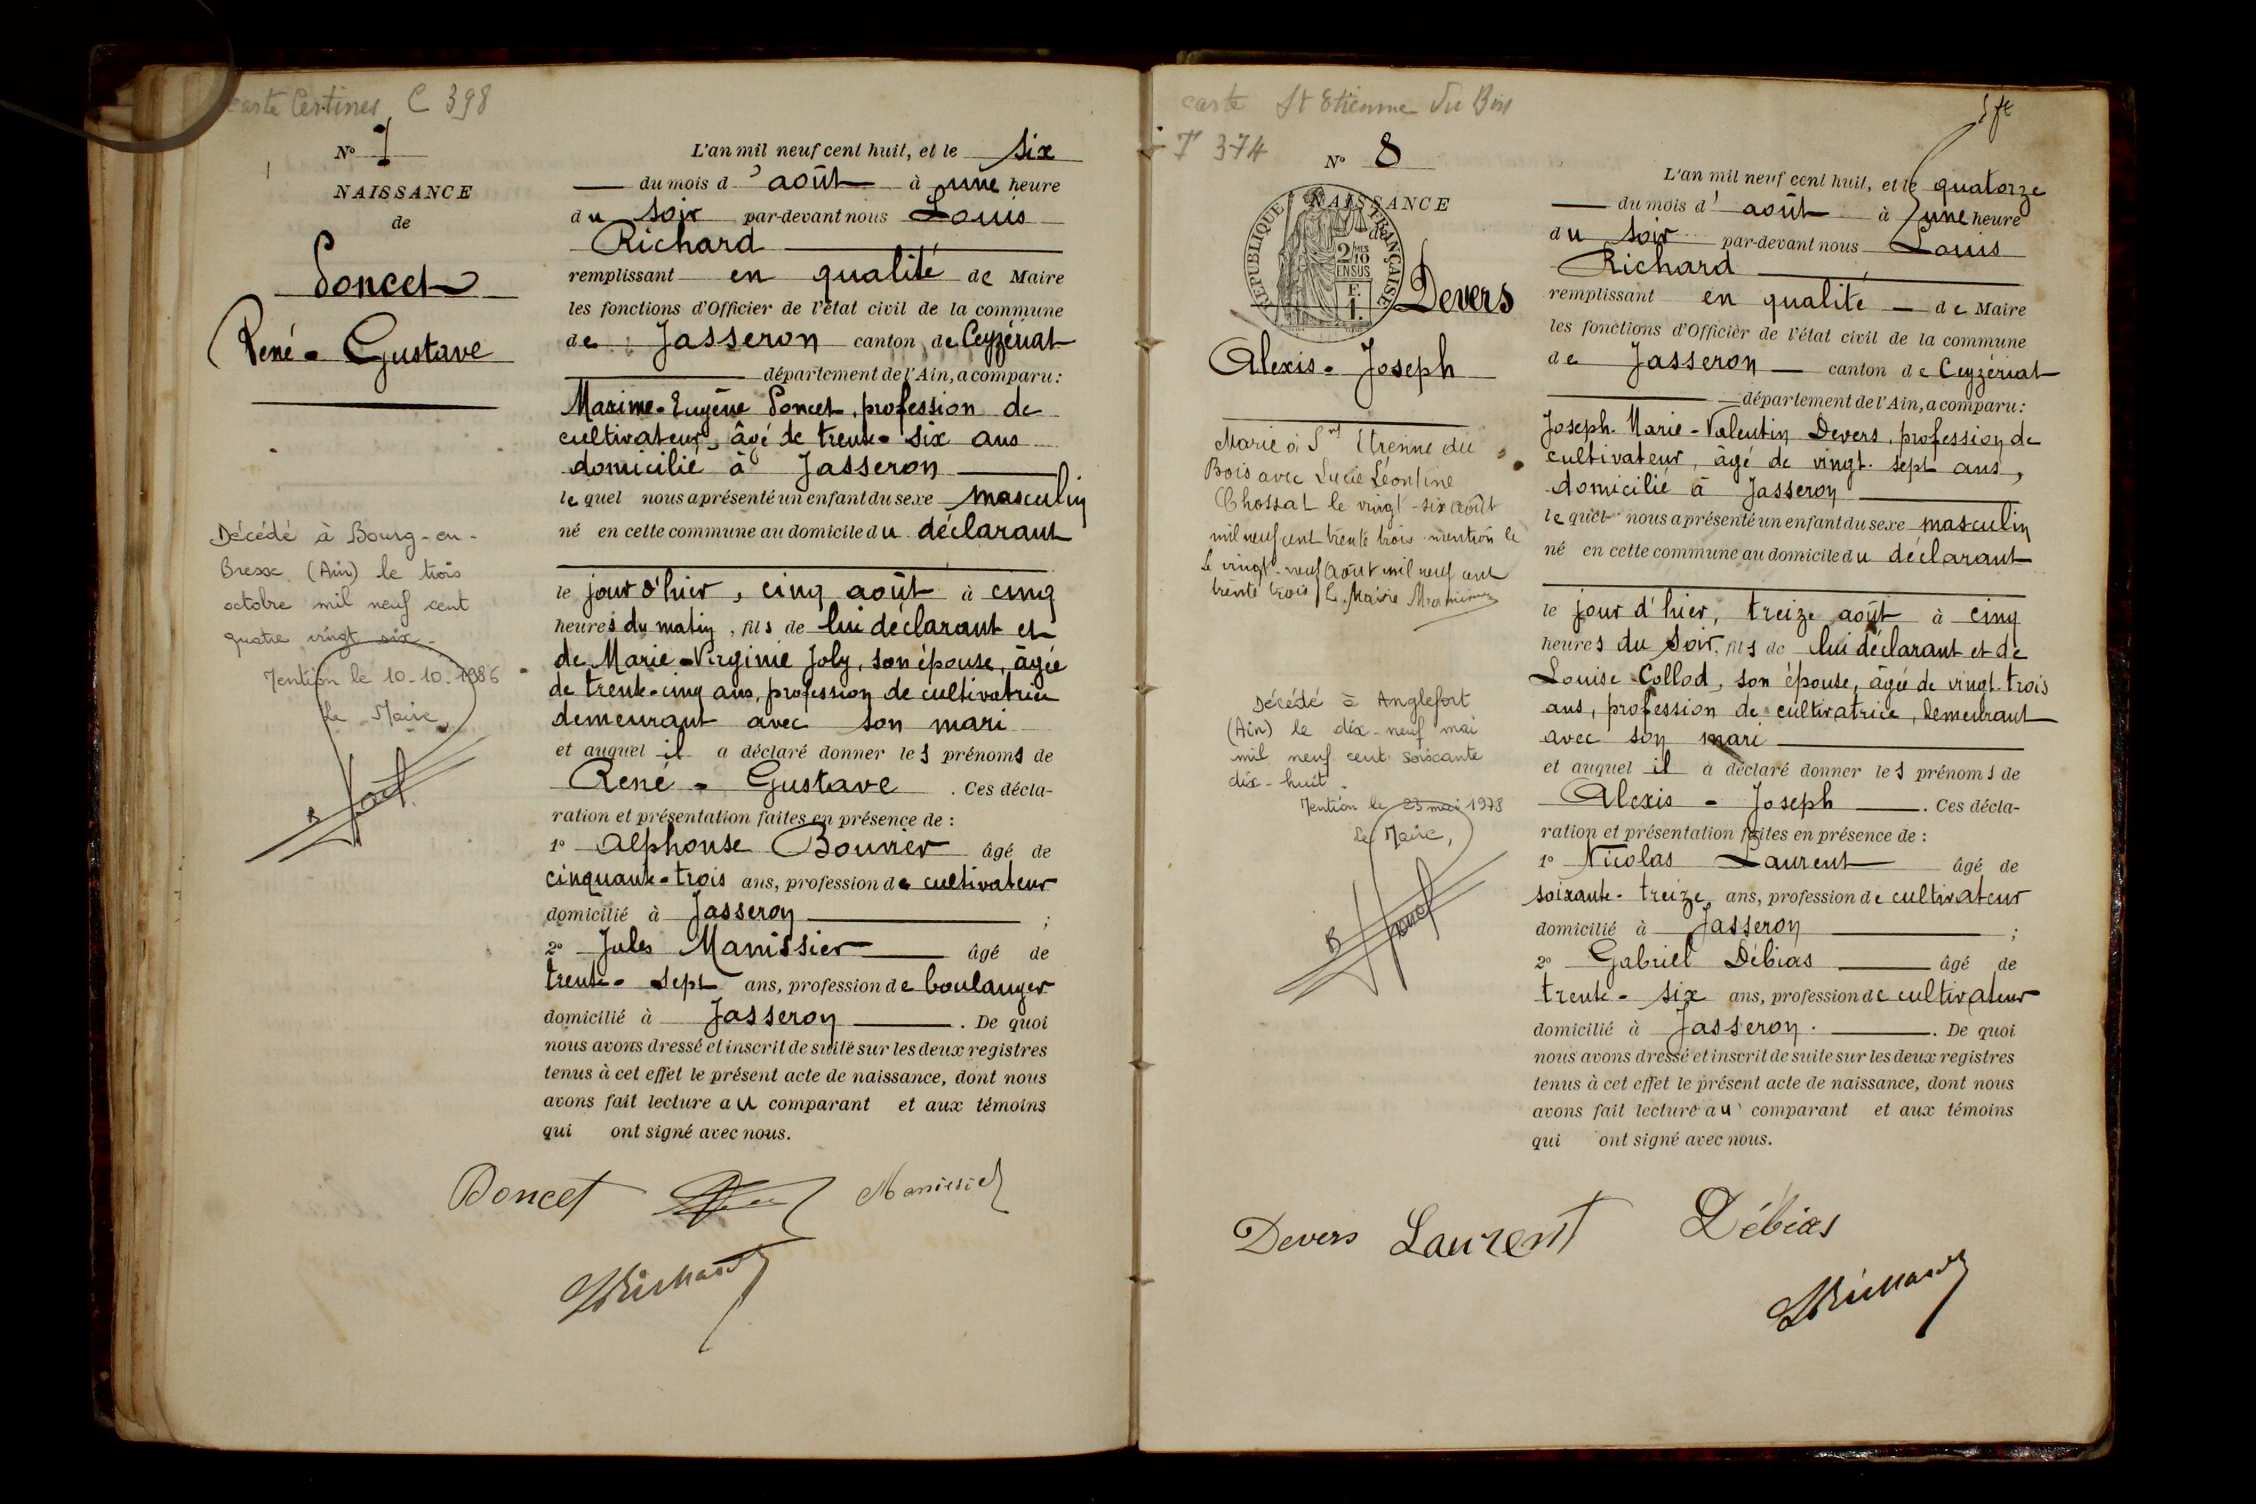 carte Certines C 398
N° 7
NAISSANCE
de
Poncet
René-Gustave
Décédé à Bourg-en-
Bresse (Ain) le trois
octobre mil neuf cent
quatre vingt six.
Mention le 10-10-1986
Le Maire
L'an mil neuf cent huit, et le six
du mois d'août à une heure
du soir par-devant nous Louis
Richard
remplissant en qualité de Maire
les fonctions d'Officier de l'état civil de la commune
de Jasseron canton de Ceyzériat
département de l'Ain, a comparu :
Marime-Eugène Poncet, profession de
cultivateur, âgé de trente-six ans
domicilié à Jasseron
lequel nous a présenté un enfant du sexe masculin
né en cette commune au domicile du déclarant
le jour d'hier, cinq août à cinq
heures du matin, fils de lui déclarant et
de Marie-Virginie Joly, son épouse, âgée
de trente-cinq ans, profession de cultivatrice
demeurant avec son mari
et auquel il a déclaré donner les prénoms de
René-Gustave. Ces décla-
ration et présentation faites en présence de :
1° Alphonse Bouvier âgé de
cinquante-trois ans, profession de cultivateur
domicilié à Jasseron ;
2° Jules Manissier âgé de
trente-sept ans, profession de boulanger
domicilié à Jasseron. De quoi
nous avons dressé et inscrit de suite sur les deux registres
tenus à cet effet le présent acte de naissance, dont nous
avons fait lecture au comparant et aux témoins
qui ont signé avec nous.
Poncet Manissier
LRichard
carte St Etienne du Bois
T 374
N° 8
NAISSANCE
de
RÉPUBLIQUE FRANÇAISE
2/10
EN SUS
F.
1.
Devers
Alexis-Joseph
Marié à Snt Etienne du
Bois avec Lucie Léontine
Chossat le vingt-six août
mil neuf cent trente trois mention le
le vingt-neuf août mil neuf cent
trente trois / L. Maire
Décédé à Anglefort
(Ain) le dix-neuf mai
mil neuf cent soixante
dix-huit.
Mention le 23 mai 1978
Le Maire,
L'an mil neuf cent huit, et le quatorze
du mois d'août à une heure
du soir par-devant nous Louis
Richard
remplissant en qualité de Maire
les fonctions d'Officier de l'état civil de la commune
de Jasseron canton de Ceyzériat
département de l'Ain, a comparu :
Joseph-Marie-Valentin Devers, profession de
cultivateur, âgé de vingt-sept ans,
domicilié à Jasseron
lequel nous a présenté un enfant du sexe masculin
né en cette commune au domicile du déclarant
le jour d'hier, treize août à cinq
heures du soir, fils de lui déclarant et de
Louise Collod, son épouse, âgée de vingt-trois
ans, profession de cultivatrice, demeurant
avec son mari
et auquel il a déclaré donner les prénoms de
Alexis-Joseph. Ces décla-
ration et présentation faites en présence de :
1° Nicolas Laurent âgé de
soixante-treize ans, profession de cultivateur
domicilié à Jasseron ;
2° Gabriel Débias âgé de
trente-six ans, profession de cultivateur
domicilié à Jasseron. De quoi
nous avons dressé et inscrit de suite sur les deux registres
tenus à cet effet le présent acte de naissance, dont nous
avons fait lecture au comparant et aux témoins
qui ont signé avec nous.
Devers Laurent Débias
LRichard